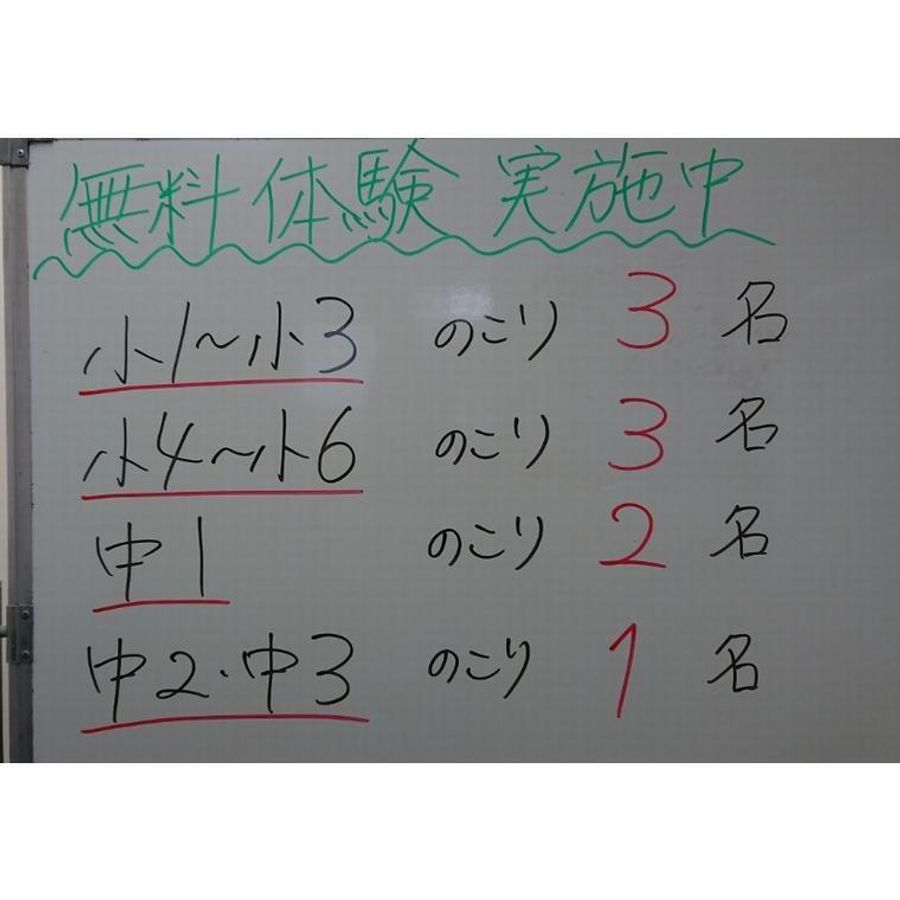 無料体験 実施中
小1～小3 のこり 3 名
小4～小6 のこり 3 名
中1 のこり 2 名
中2・中3 のこり 1 名